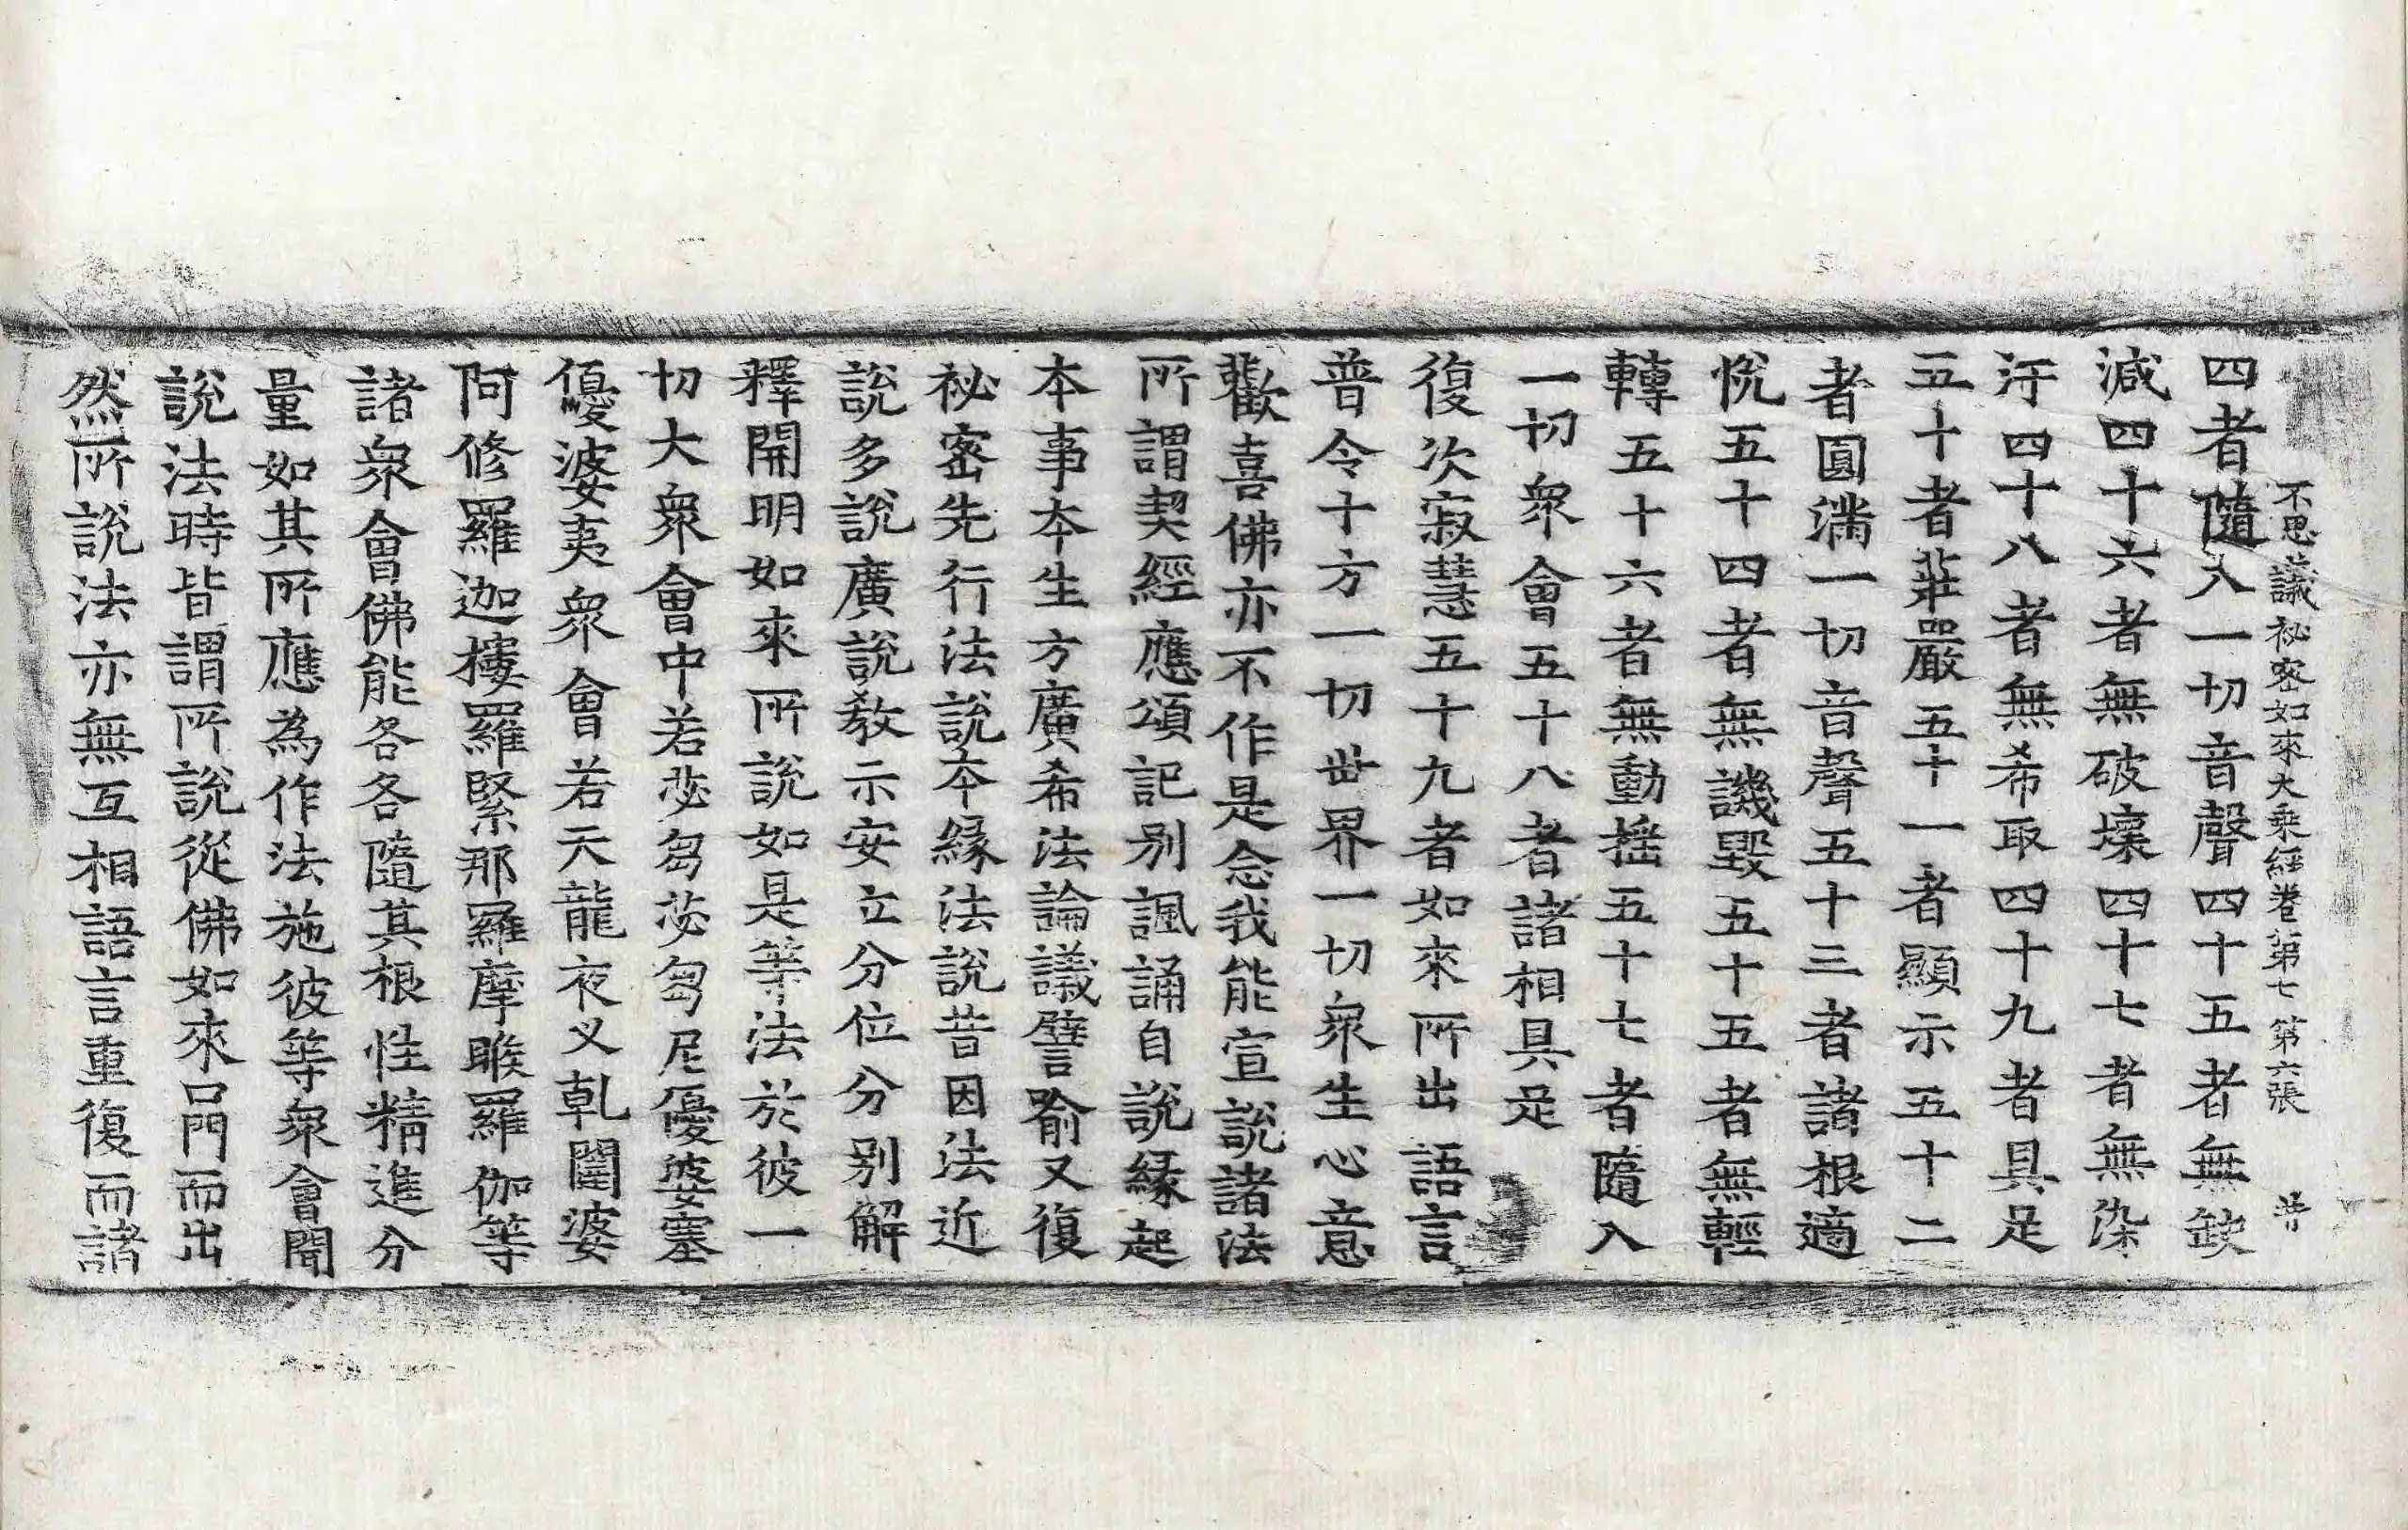 不思議祕密如來大乘經卷第七 第六張
四者隨入一切音聲四十五者無缺
減四十六者無破壞四十七者無染
汙四十八者無希取四十九者具足
五十者莊嚴五十一者顯示五十二
者圓滿一切音聲五十三者諸根適
悅五十四者無譏毀五十五者無輕
轉五十六者無動搖五十七者隨入
一切衆會五十八者諸相具足
復次寂慧五十九者如來所出語言
普令十方一切世界一切衆生心意
歡喜佛亦不作是念我能宣說諸法
所謂契經應頌記别諷誦自說緣起
本事本生方廣希法論議譬喻又復
祕密先行法說本緣法說昔因法近
說多說廣說教示安立分位分別解
釋開明如來所說如是等法於彼一
切大衆會中若苾芻苾芻尼優婆塞
優婆夷衆會若天龍夜叉乹闥婆
阿修羅迦樓羅緊那羅摩睺羅伽等
諸衆會佛能各各隨其根性精進分
量如其所應為作法施彼等衆會聞
說法時皆謂所說從佛如來口門而出
然所說法亦無互相語言重復而諸